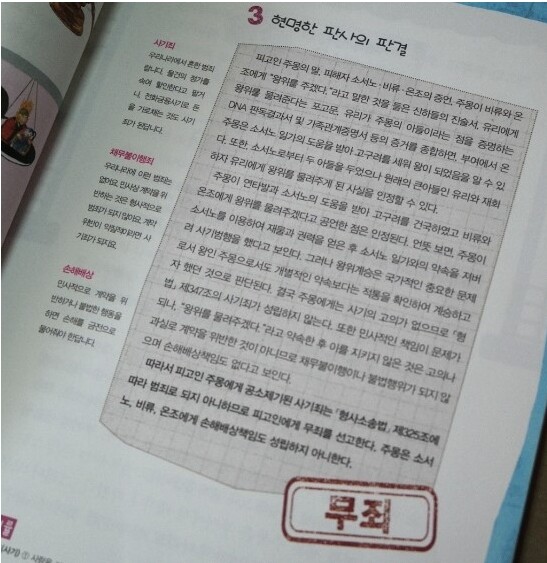 3 현명한 판사의 판결
사기죄
우리나라에서 흔한 범죄
랍니다. 물건의 정가를
속여 할인한다고 팔거
나, 전화금융사기로 돈
을 가로채는 것도 사기
죄가 된답니다.
채무불이행죄
우리나라에 이런 범죄는
없어요. 민사상 계약을 위
반하는 것은 형사적으로
범죄가 되지 않아요. 계약
위반이 악질적이라면 사
기죄가 되지요.
손해배상
민사적으로 계약을 위
반하거나 불법한 행동을
하면 손해를 금전으로
물어줘야 한답니다.
피고인 주몽의 말, 피해자 소서노·비류·온조의 증언, 주몽이 비류와 온
조에게 "왕위를 주겠다."라고 말한 것을 들은 신하들의 진술서, 유리에게
왕위를 물려준다는 포고문, 유리가 주몽의 아들이라는 점을 증명하는
DNA 판독결과서 및 가족관계증명서 등의 증거를 종합하면, 부여에서 온
주몽은 소서노 일가의 도움을 받아 고구려를 세워 왕이 되었음을 알 수 있
다. 또한 소서노로부터 두 아들을 두었으나 원래의 큰아들인 유리와 재회
하자 유리에게 왕위를 물려주게 된 사실을 인정할 수 있다.
주몽이 연타발과 소서노의 도움을 받아 고구려를 건국하였고 비류와
온조에게 왕위를 물려주겠다고 공언한 점은 인정된다. 언뜻 보면, 주몽이
소서노를 이용하여 재물과 권력을 얻은 후 소서노 일가와의 약속을 저버
려 사기범행을 했다고 보인다. 그러나 왕위계승은 국가적인 중요한 문제
로서 왕인 주몽으로서도 개별적인 약속보다는 적통을 확인하여 계승하고
자 했던 것으로 판단된다. 결국 주몽에게는 사기의 고의가 없으므로 「형
법」 제347조의 사기죄가 성립하지 않는다. 또한 민사적인 책임이 문제가
되나, "왕위를 물려주겠다."라고 약속한 후 이를 지키지 않은 것은 고의나
과실로 계약을 위반한 것이 아니므로 채무불이행이나 불법행위가 되지 않
으며 손해배상책임도 없다고 보인다.
따라서 피고인 주몽에게 공소제기된 사기죄는 「형사소송법」 제325조에
따라 범죄로 되지 아니하므로 피고인에게 무죄를 선고한다. 주몽은 소서
노, 비류, 온조에게 손해배상책임도 성립하지 아니한다.
무죄